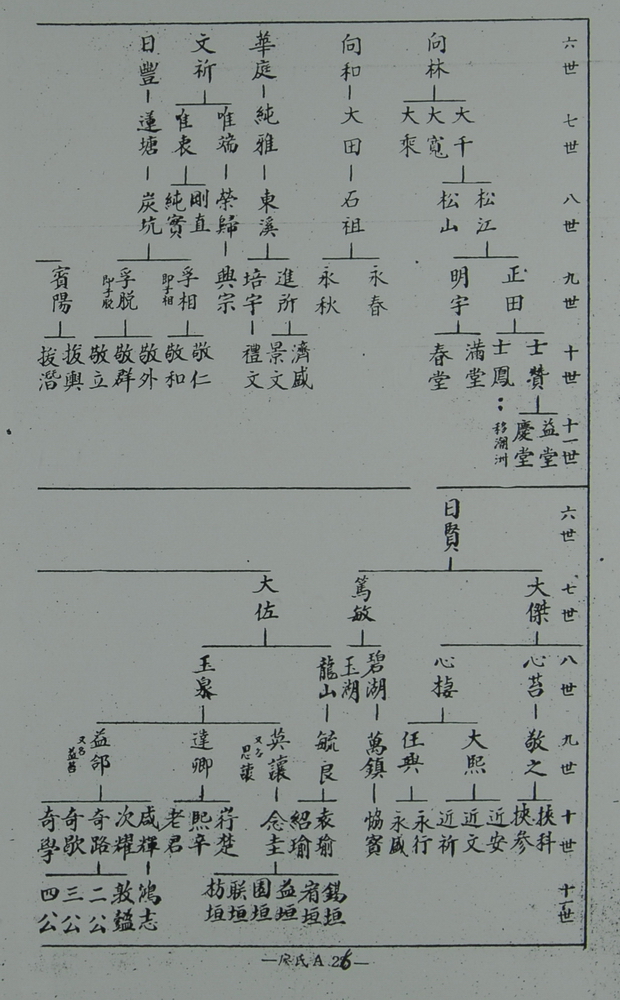 六世 向林 向和 華庭 文祈 日豐
七世 大千 大寬 大乘 大田 純雅 唯端 唯衷 蓮塘
八世 松江 松山 石祖 東溪 榮歸 剛直 純實 炭坑
九世 正田 明宇 永春 永秋 進所 培宇 興宗 孚相 即子相 孚脱 即子脱 賓陽
十世 士贊 士鳳 滿堂 春堂 濟盛 景文 禮文 敬仁 敬和 敬外 敬群 敬立 拔輿 拔潛
十一世 益堂 慶堂 移潮州
六世 日賢
七世 大傑 篤敏 大佐
八世 心苔 心棲 碧湖 玉湖 龍山 玉泉
九世 敬之 大熙 任典 萬鎮 毓良 英讓 又名思讓 達卿 益郃 又名益苔
十世 挾科 挾參 近安 近文 近祈 永行 永盛 恊賓 袁瑜 紹瑜 念圭 荇楚 熙辛 老君 咸輝 次耀 奇路 奇歐 奇學
十一世 錫垣 宥垣 益垣 園垣 联垣 枋垣 鴻志 敦鎰 二公 三公 四公
氏 A.26